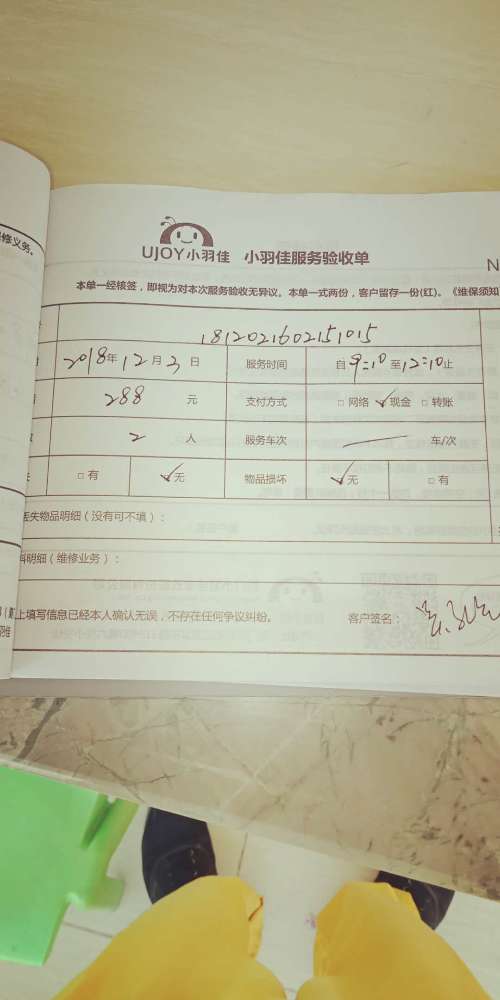 修义务。
UJOY小羽佳 小羽佳服务验收单
N
本单一经核签，即视为对本次服务验收无异议。本单一式两份，客户留存一份(红)。《维保须知
1812021602151015
2018年12月3日 服务时间 自9:10至12:10止
288 元 支付方式 □ 网络 ✓现金 □ 转账
2 人 服务车次 车/次
□ 有 ✓无 物品损坏 ✓无 □ 有
丢失物品明细（没有可不填）：
料明细（维修业务）：
上填写信息已经本人确认无误，不存在任何争议纠纷。 客户签名：